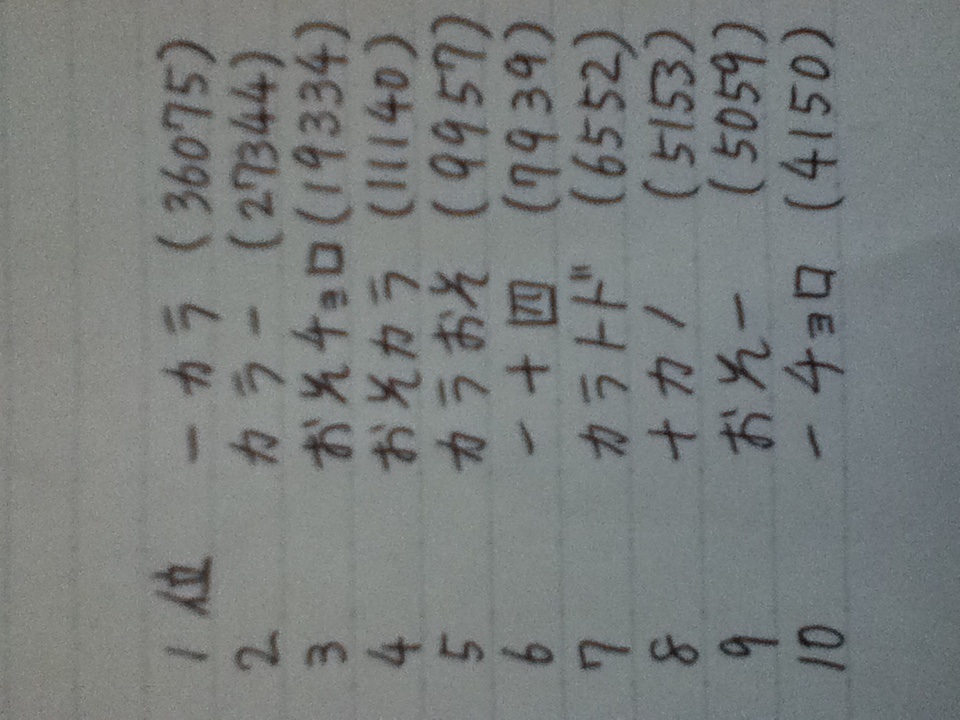 1位 一カラ (36075)
2 カラ一 (27344)
3 おそチョロ (19334)
4 おそカラ (11140)
5 カラおそ (9957)
6 一十四 (7939)
7 カラトド (6552)
8 十カノ (5153)
9 おそ一 (5059)
10 一チョロ (4150)